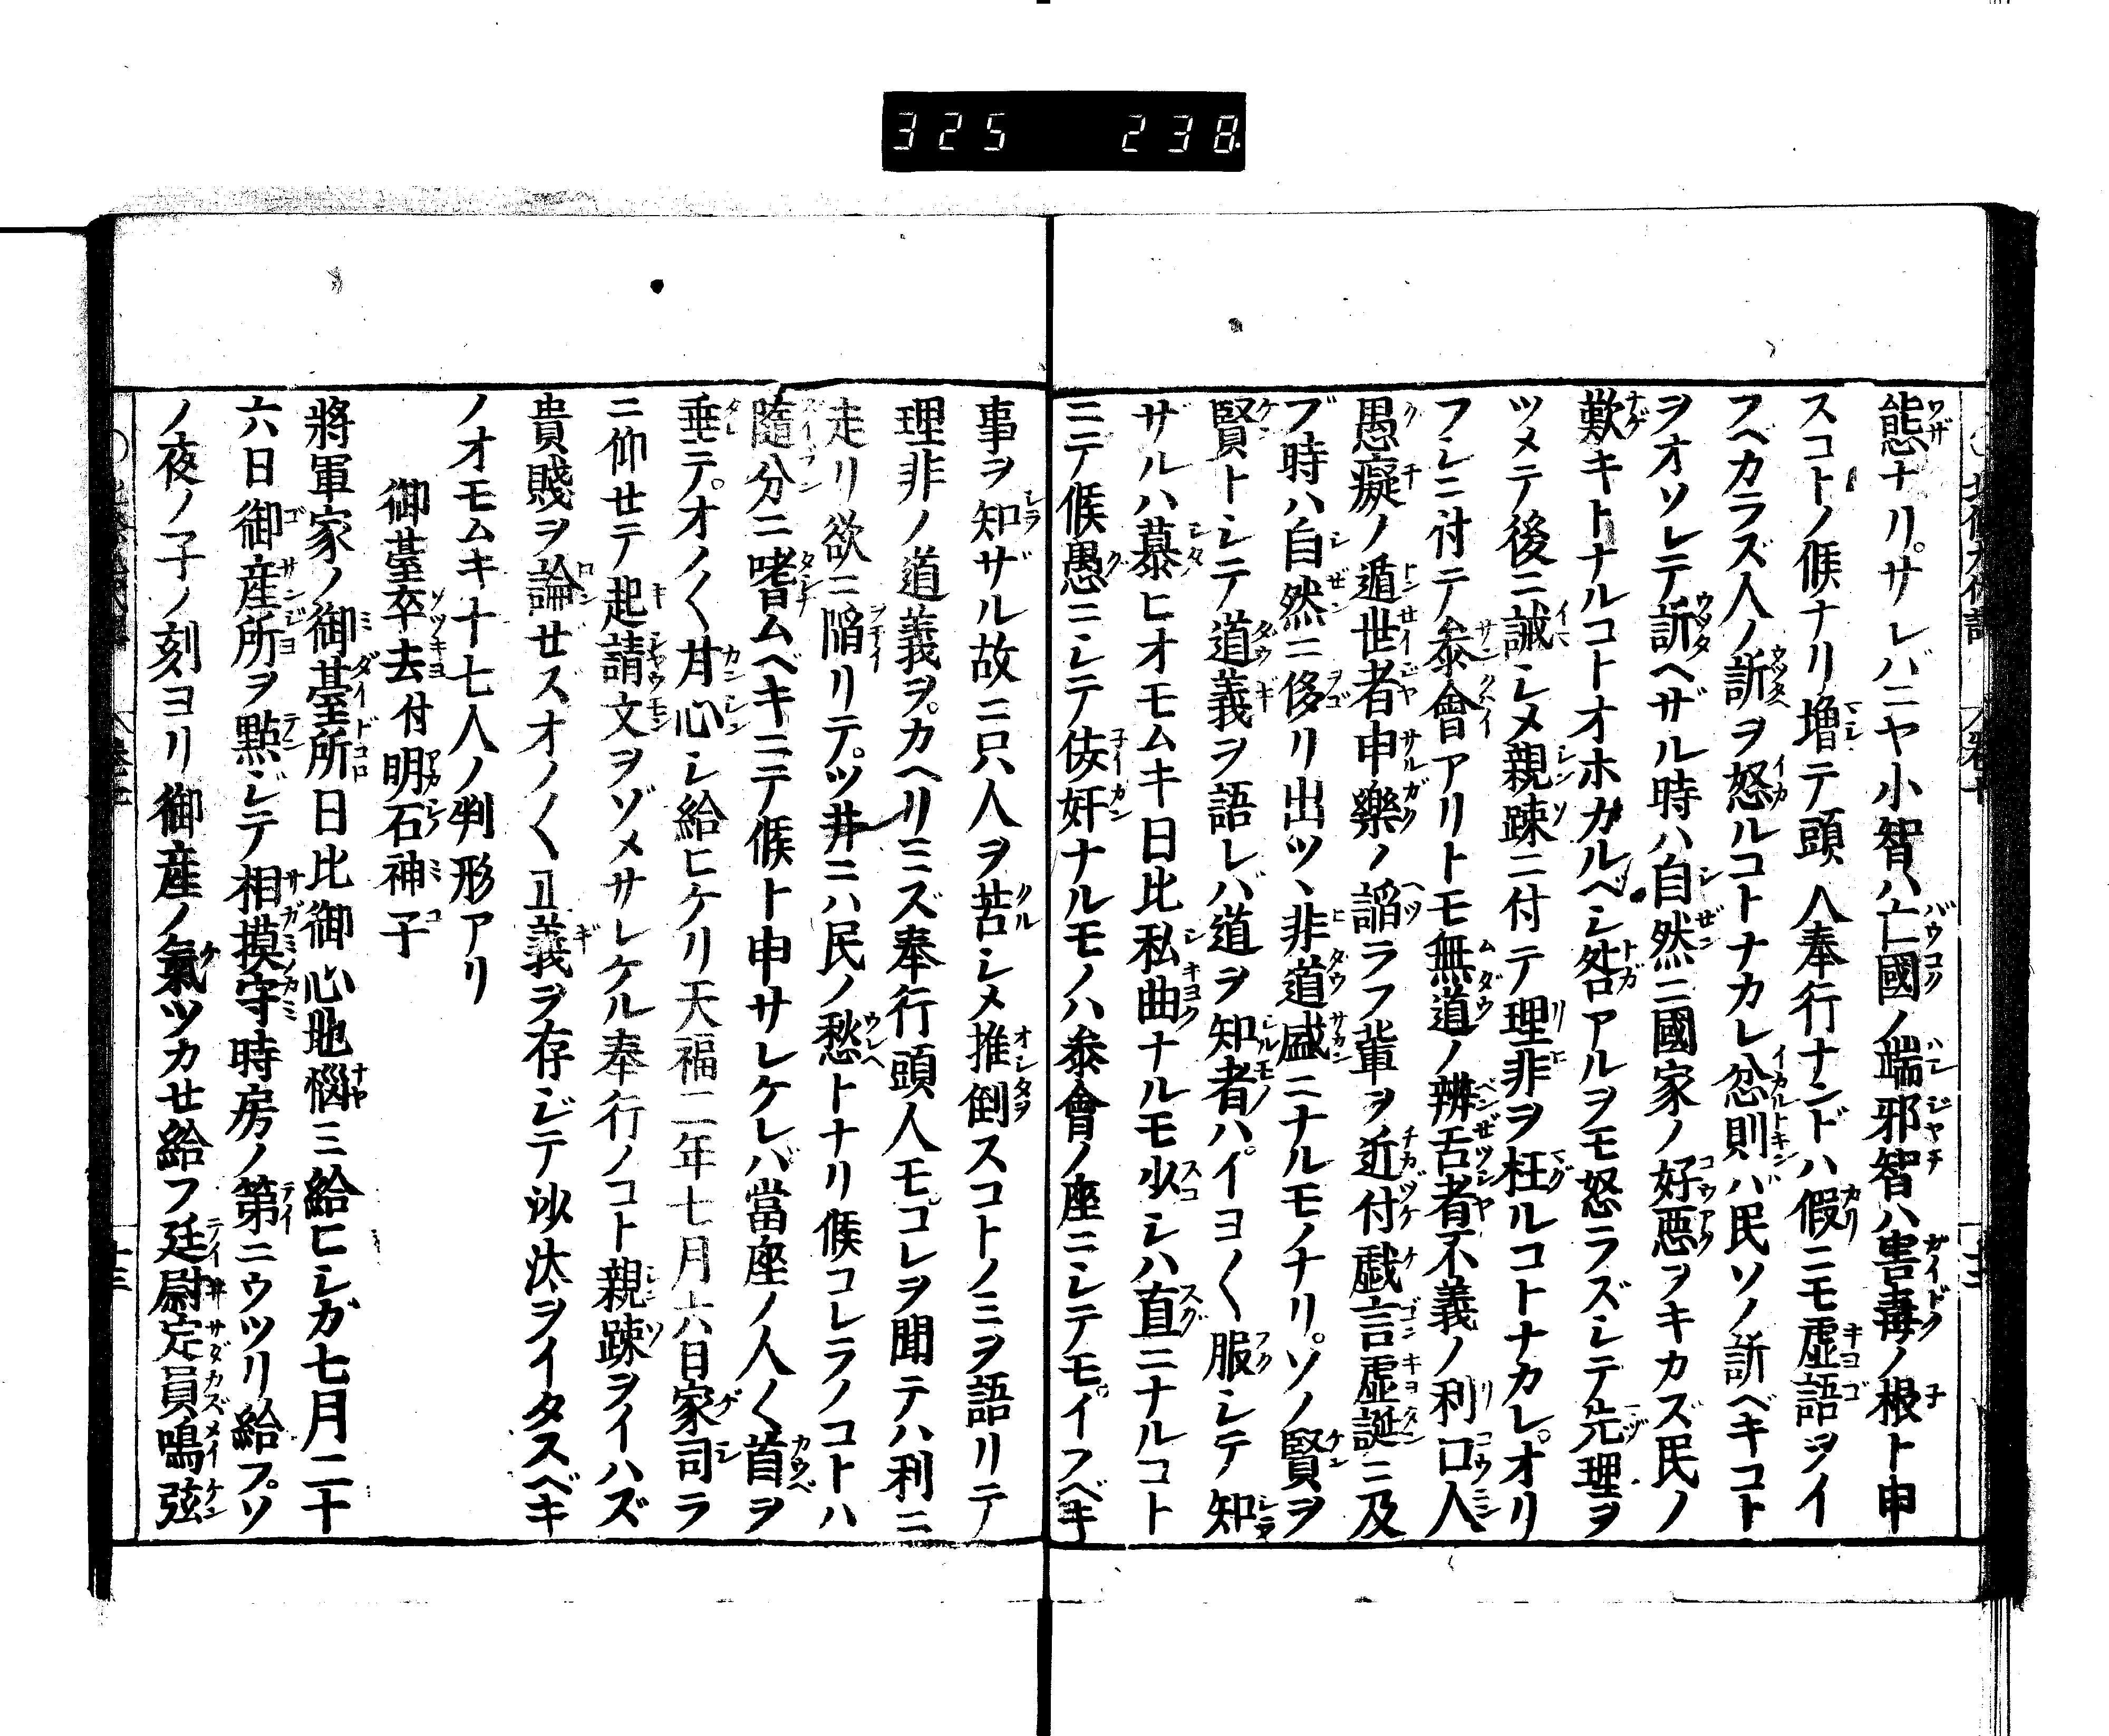 325 238
態ナリサレバニヤ小智ハ亡國ノ端邪智ハ害毒ノ根ト申
スコトノ候ナリ増テ頭人奉行ナンドハ假ニモ虚語ヲイ
フベカラズ人ノ訴ヲ怒ルコトナカレ忿則ハ民ソノ訴ベキコト
ヲオソレテ訴ヘザル時ハ自然ニ國家ノ好惡ヲキカズ民ノ
歎キトナルコトオホカルベシ咎アルヲモ怒ラズシテ先理ヲ
ツメテ後ニ誡シメ親踈ニ付テ理非ヲ枉ルコトナカレオリ
フシニ付テ參會アリトモ無道ノ辨舌者不義ノ利口人
愚癡ノ遁世者申樂ノ謟ラフ輩ヲ近付戯言虚誕ニ及
ブ時ハ自然ニ侈リ出ツヽ非道盛ニナルモノナリソノ賢ヲ
賢トシテ道義ヲ語レバ道ヲ知者ハイヨ〱服シテ知
ザルハ慕ヒオモムキ日比私曲ナルモ少シハ直ニナルコト
ニテ候愚ニシテ佞奸ナルモノハ參會ノ座ニシテモイフベキ
事ヲ知ザル故ニ只人ヲ苦シメ推倒スコトノミヲ語リテ
理非ノ道義ヲカヘリミズ奉行頭人モコレヲ聞テハ利ニ
走リ欲ニ陷リテツ井ニハ民ノ愁トナリ候コレラノコトハ
隨分ニ嗜ムベキニテ候ト申サレケレバ當座ノ人〱首ヲ
垂テオノ〱甘心シ給ヒケリ天福二年七月六日家司ラ
ニ仰セテ起請文ヲゾメサレケル奉行ノコト親踈ヲイハズ
貴賤ヲ論ゼズオノ〱正義ヲ存ジテ沙汰ヲイタスベキ
ノオモムキ十七人ノ判形アリ
御臺卒去付明石神子
將軍家ノ御臺所日比御心地惱ミ給ヒシガ七月二十
六日御産所ヲ點ジテ相摸守時房ノ第ニウツリ給フソ
ノ夜ノ子ノ刻ヨリ御産ノ氣ツカセ給フ廷尉定員鳴弦